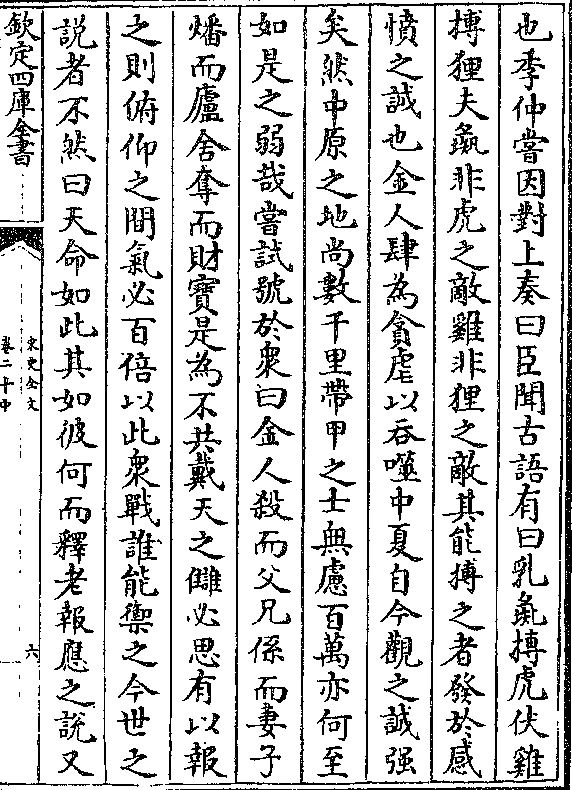 也季仲嘗因對上奏曰臣聞古語有曰乳彘搏虎伏雞
搏狸夫彘非虎之敵雞非狸之敵其能搏之者發於感
憤之誠也金人肆為貪虐以吞噬中夏自今觀之誠强
矣然中原之地尚數千里帶甲之士無慮百萬亦何至
如是之弱哉嘗試號於衆曰金人殺而父兄係而妻子
燔而廬舍奪而財寶是為不共戴天之讎必思有以報
之則俯仰之間氣必百倍以此衆戰誰能禦之今世之
説者不然曰天命如此其如彼何而釋老報應之説又
欽定四庫全書
宋史全文
卷二十中
六